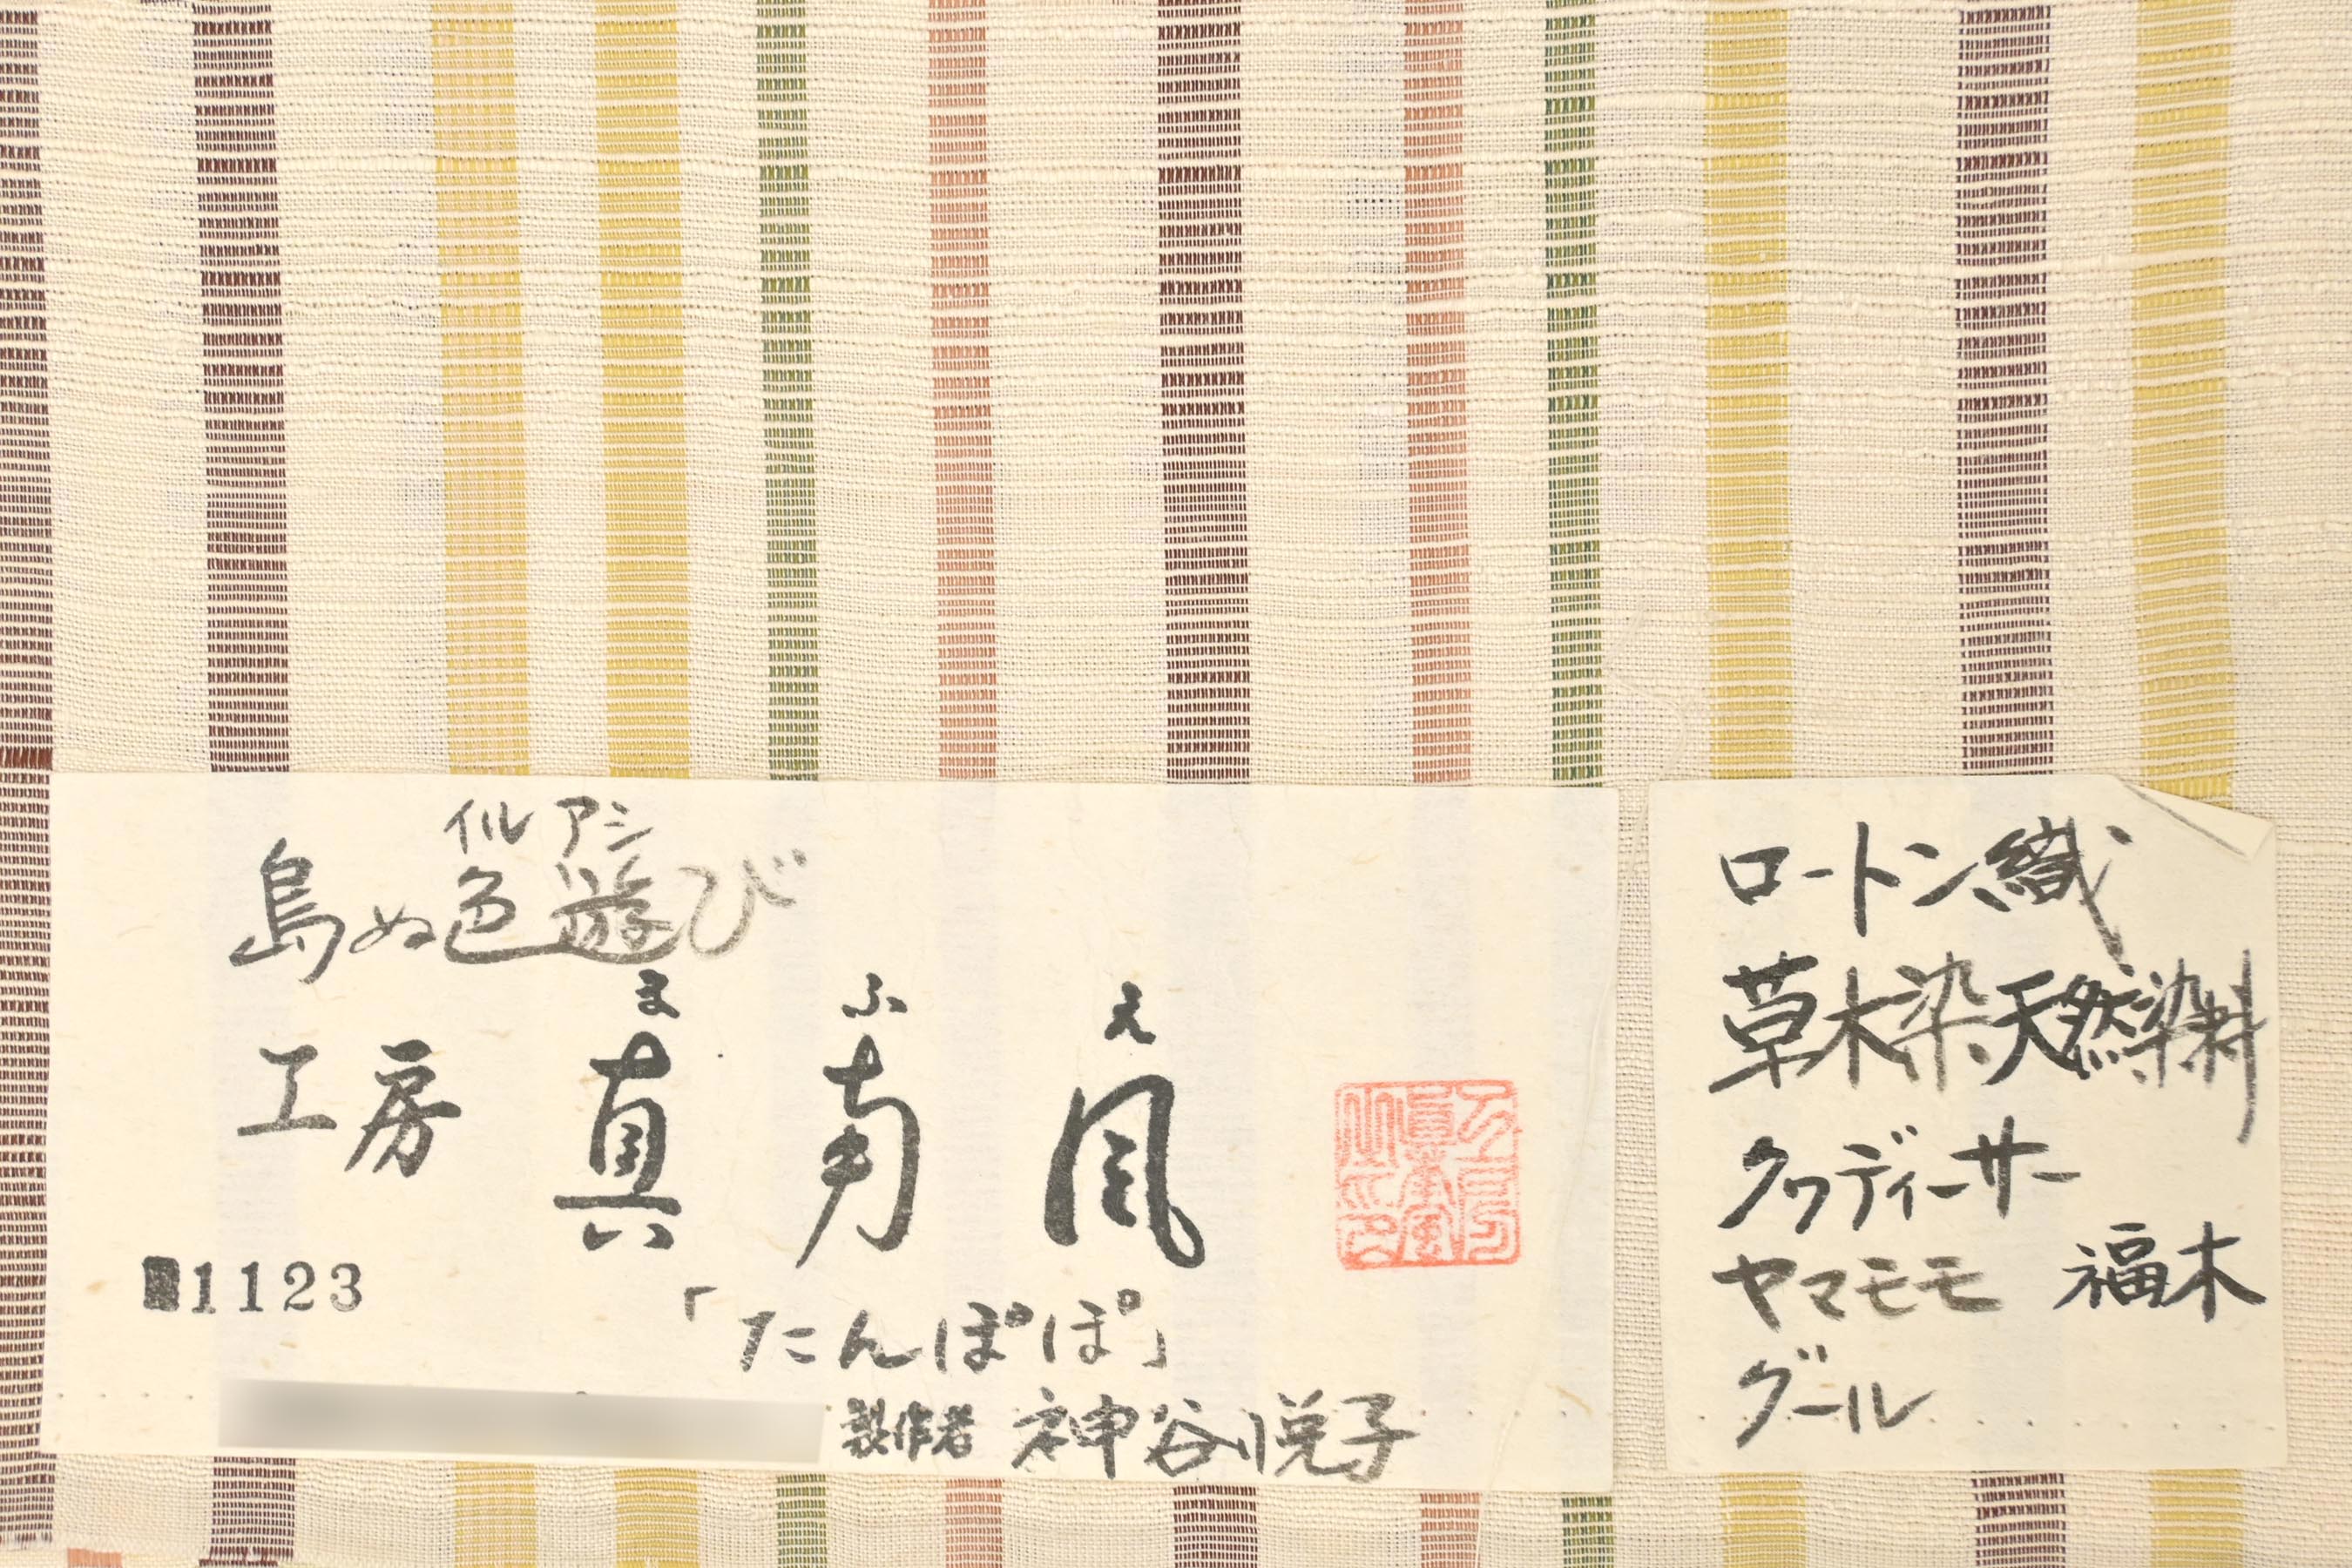 イルアシ
島ぬ色遊び
まふえ
工房 真南風
1123
「たんぽぽ」
製作者 神谷悦子
ロートン織
草木染天然染料
クワディーサー
ヤマモモ 福木
グール